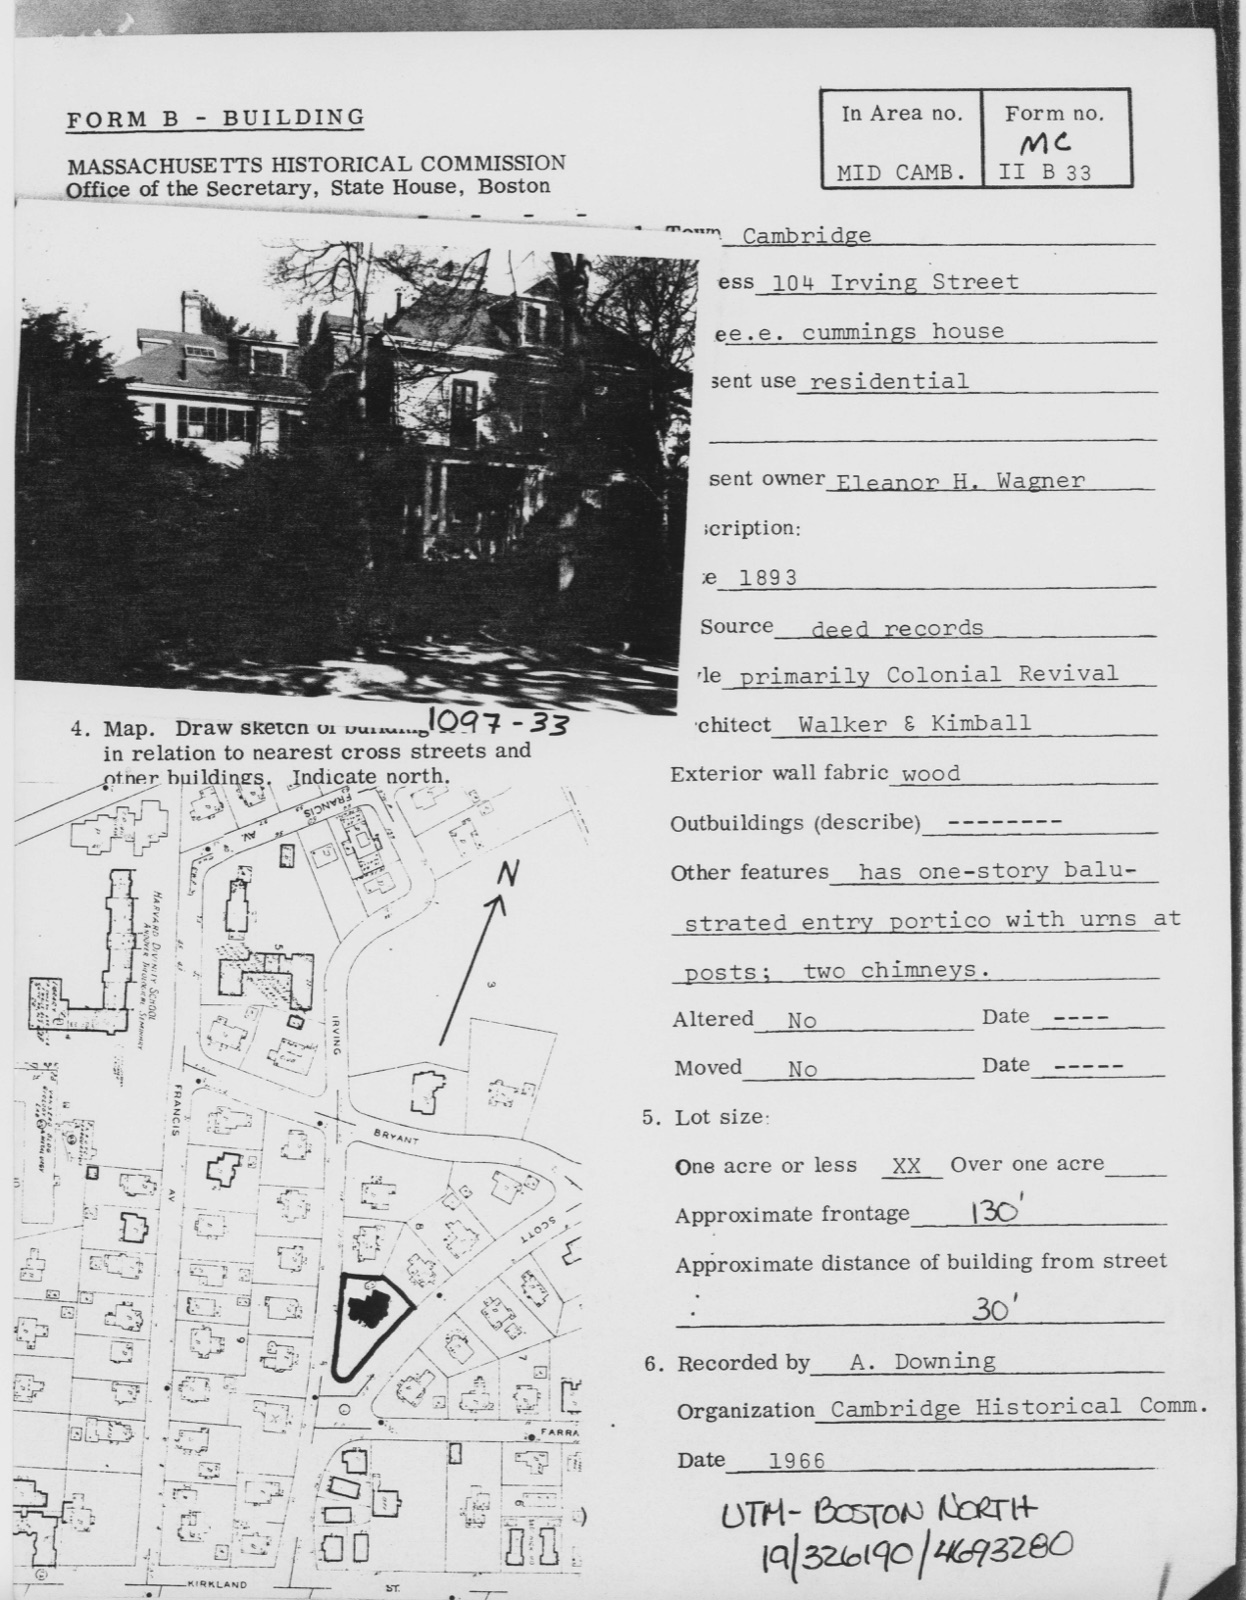 FORM B - BUILDING
MASSACHUSETTS HISTORICAL COMMISSION
Office of the Secretary, State House, Boston
In Area no.
MID CAMB.
Form no.
MC
II B 33
Town Cambridge
ess 104 Irving Street
e e.e. cummings house
sent use residential
sent owner Eleanor H. Wagner
scription:
e 1893
Source deed records
le primarily Colonial Revival
chitect Walker & Kimball
Exterior wall fabric wood
Outbuildings (describe) --------
Other features has one-story balu-
strated entry portico with urns at
posts; two chimneys.
Altered No Date ----
Moved No Date -----
5. Lot size:
One acre or less XX Over one acre
Approximate frontage 130'
Approximate distance of building from street
30'
6. Recorded by A. Downing
Organization Cambridge Historical Comm.
Date 1966
UTM- BOSTON NORTH
19/326190/4693280
1097-33
4. Map. Draw sketch of building
in relation to nearest cross streets and
other buildings. Indicate north.
FRANCIS
AV.
N
HARVARD DIVINITY SCHOOL
ANDOVER THEOLOGICAL SEMINARY
5
3
IRVING
FRANCIS
AV
BRYANT
SCOTT
8
9
7
6
FARRA
KIRKLAND
ST.